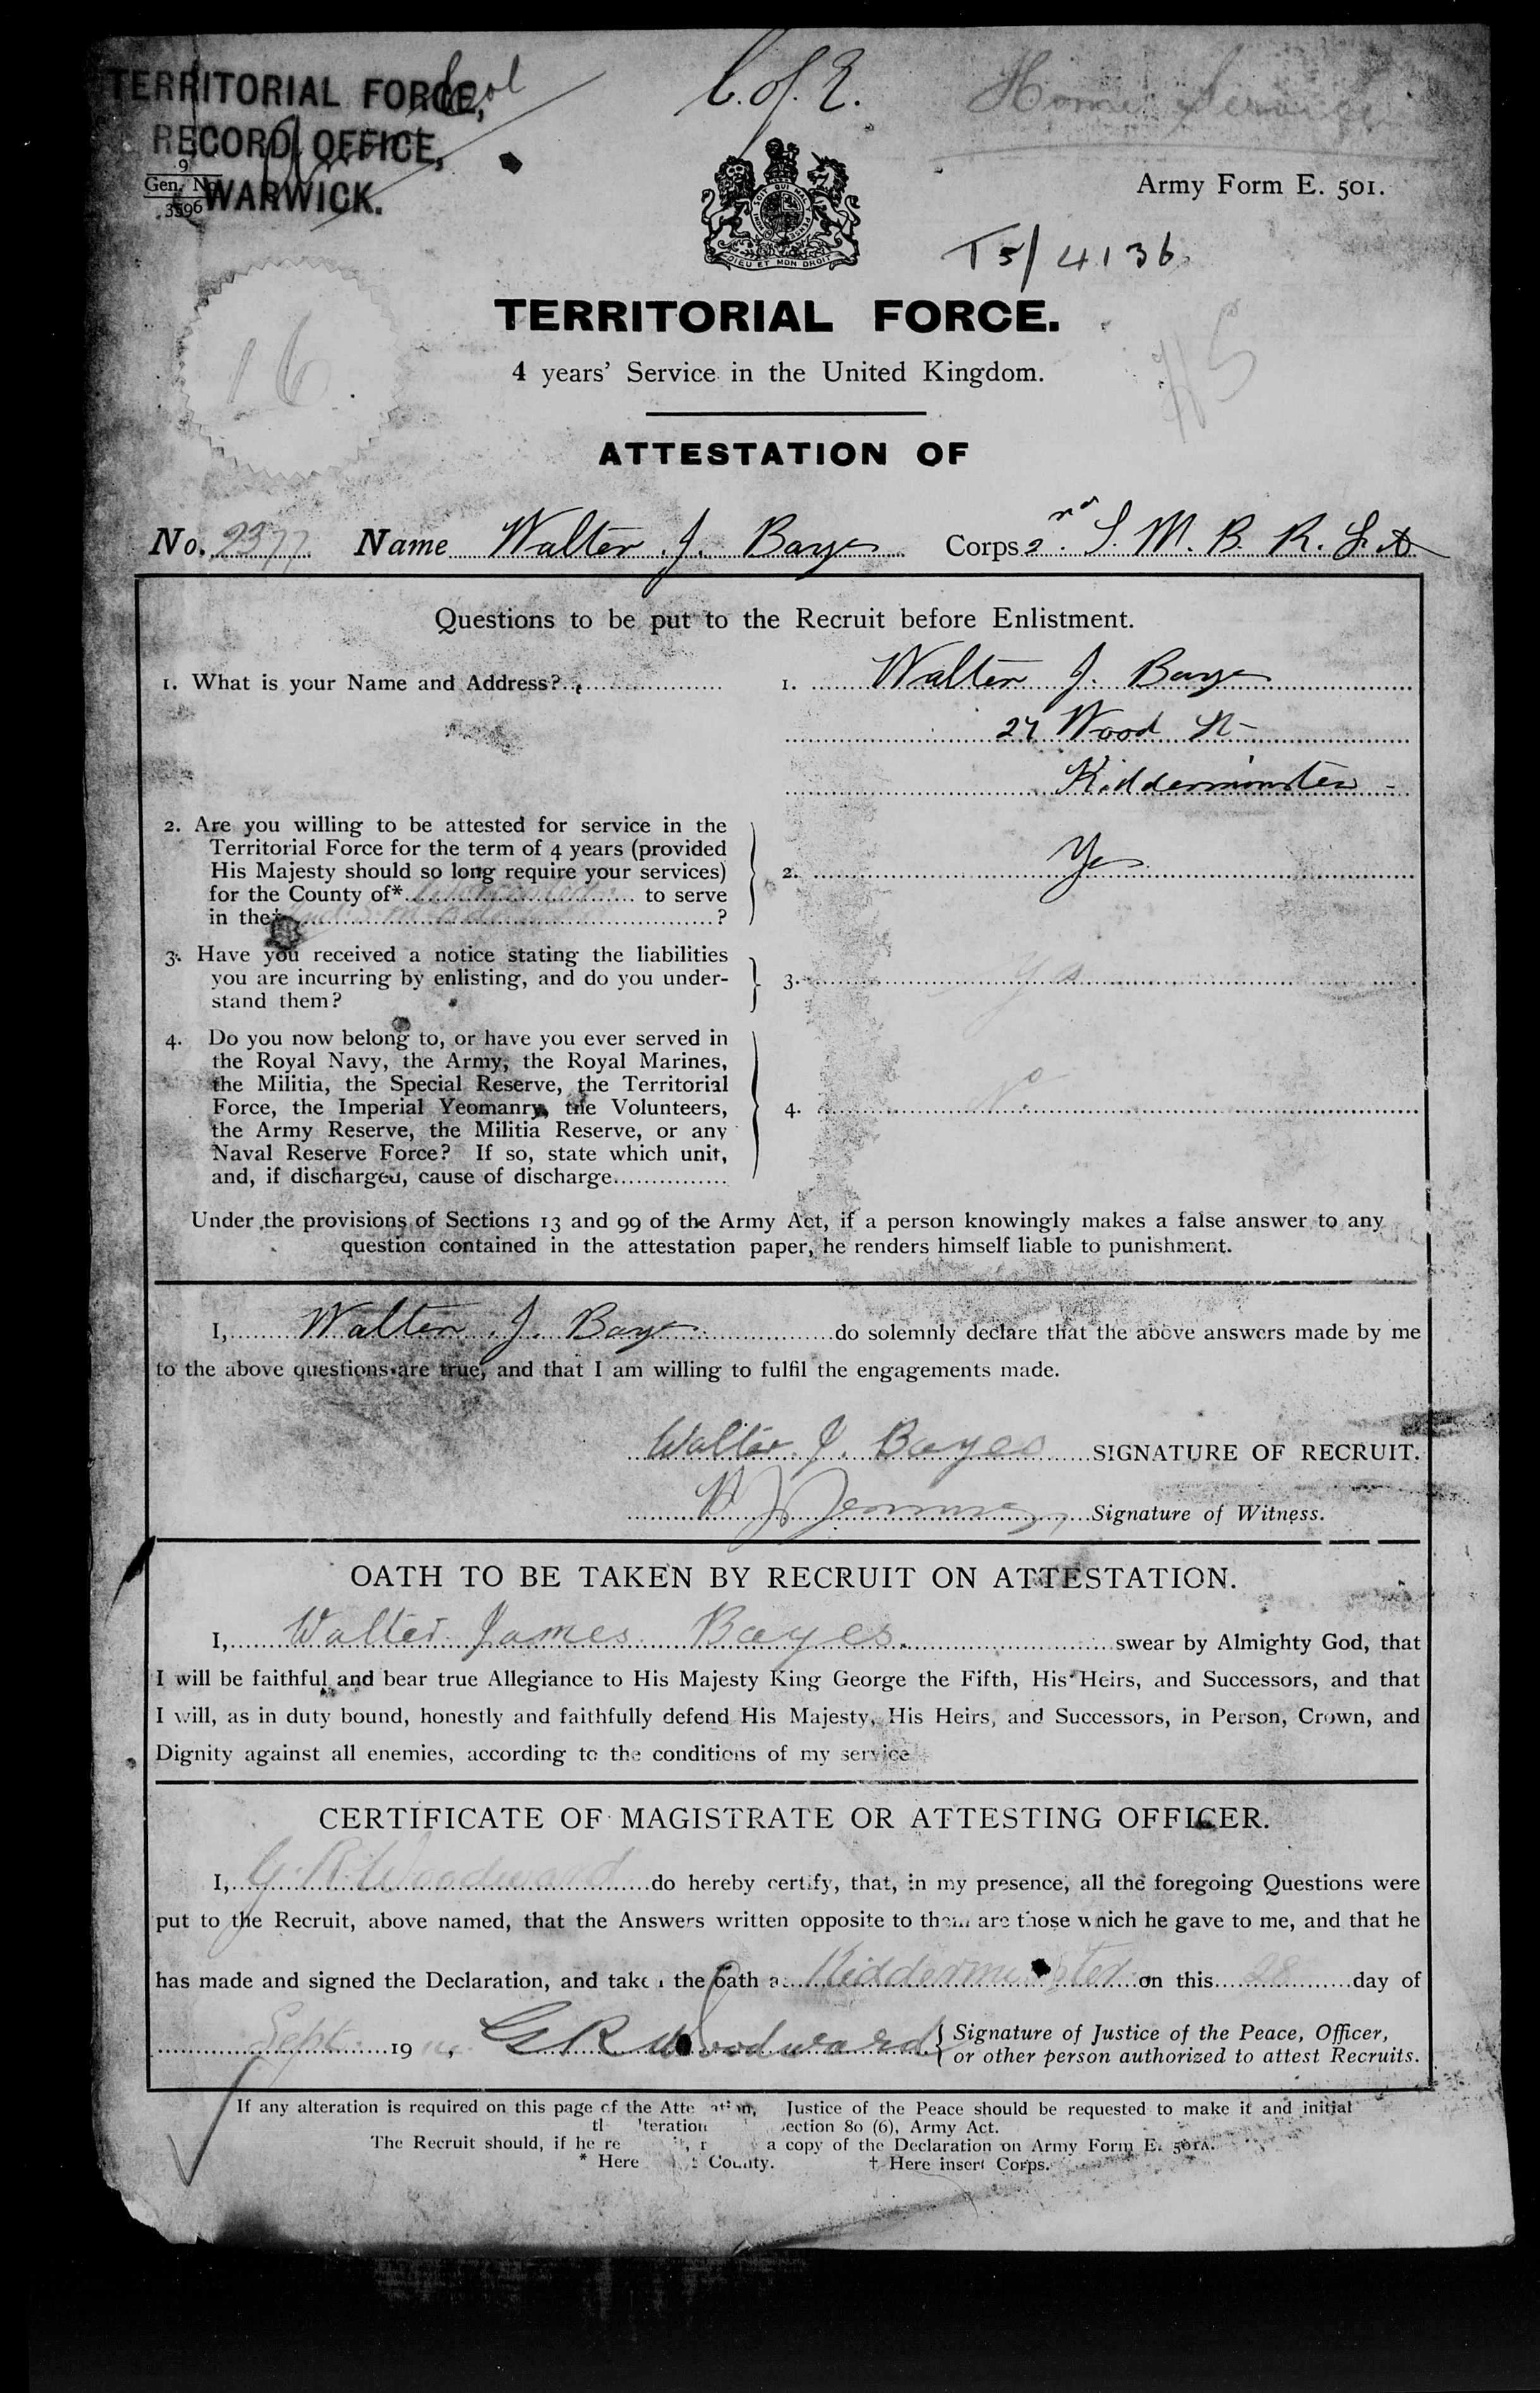 TERRITORIAL FORCE,
RECORD OFFICE,
WARWICK.
9
Gen. No.
3596
C. of E.
Home Service
Army Form E. 501.
HONI SOIT QUI MAL Y PENSE
DIEU ET MON DROIT
T5/4136
16
TERRITORIAL FORCE.
4 years' Service in the United Kingdom.
ATTESTATION OF
No. 2377 Name Walter J. Bayes Corps S. M. B. R. F. A
Questions to be put to the Recruit before Enlistment.
1. What is your Name and Address? 1. Walter J. Bayes
27 Wood St
Kidderminster
2. Are you willing to be attested for service in the
Territorial Force for the term of 4 years (provided
His Majesty should so long require your services)
for the County of* Worcester to serve
in the† ?
2. Yes
3. Have you received a notice stating the liabilities
you are incurring by enlisting, and do you under-
stand them?
3. Yes
4. Do you now belong to, or have you ever served in
the Royal Navy, the Army, the Royal Marines,
the Militia, the Special Reserve, the Territorial
Force, the Imperial Yeomanry, the Volunteers,
the Army Reserve, the Militia Reserve, or any
Naval Reserve Force? If so, state which unit,
and, if discharged, cause of discharge
4. No.
Under the provisions of Sections 13 and 99 of the Army Act, if a person knowingly makes a false answer to any
question contained in the attestation paper, he renders himself liable to punishment.
I, Walter J. Bayes do solemnly declare that the above answers made by me
to the above questions are true, and that I am willing to fulfil the engagements made.
Walter J. Bayes SIGNATURE OF RECRUIT.
Signature of Witness.
OATH TO BE TAKEN BY RECRUIT ON ATTESTATION.
I, Walter James Bayes. swear by Almighty God, that
I will be faithful and bear true Allegiance to His Majesty King George the Fifth, His Heirs, and Successors, and that
I will, as in duty bound, honestly and faithfully defend His Majesty, His Heirs, and Successors, in Person, Crown, and
Dignity against all enemies, according to the conditions of my service
CERTIFICATE OF MAGISTRATE OR ATTESTING OFFICER.
I, G. R. Woodward do hereby certify, that, in my presence, all the foregoing Questions were
put to the Recruit, above named, that the Answers written opposite to them are those which he gave to me, and that he
has made and signed the Declaration, and taken the oath at Kidderminster on this 28 day of
Sept 1914, G R Woodward Signature of Justice of the Peace, Officer,
or other person authorized to attest Recruits.
If any alteration is required on this page of the Attestation, Justice of the Peace should be requested to make it and initial
alteration Section 80 (6), Army Act.
The Recruit should, if he re a copy of the Declaration on Army Form E. 501A.
* Here County. † Here insert Corps.